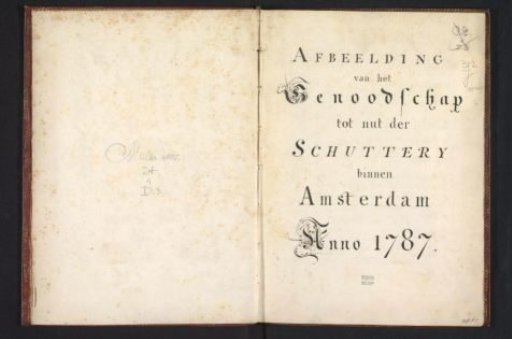 AFBEELDING
van het
Genoodschap
tot nut der
SCHUTTERY
binnen
Amsterdam
Anno 1787.